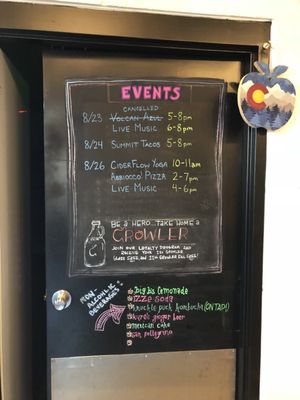 EVENTS
CANCELLED
8/23 VOLCAN AZUL 5-8pm
LIVE MUSIC 6-8pm
8/24 SUMMIT TACOS 5-8pm
8/26 CIDER FLOW YOGA 10-11am
ABBIOCCO PIZZA 2-7pm
LIVE MUSIC 4-6pm
BE A HERO... TAKE HOME A
GROWLER
JOIN OUR LOYALTY PROGRAM AND
RECEIVE YOUR 1ST GROWLER
NON-
ALCOHOLIC
BEVERAGES
big b's lemonade
IZZE soda
knuckle puck kombucha (ON TAP!)
ginger beer
mexican coke
san pellegrino